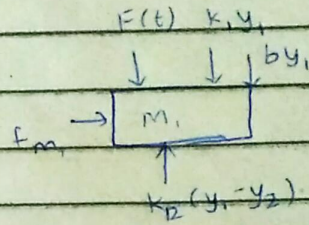 F(t) K₁y₁
by₁
Fm₁ M₁
K₁₂(y₁-y₂)